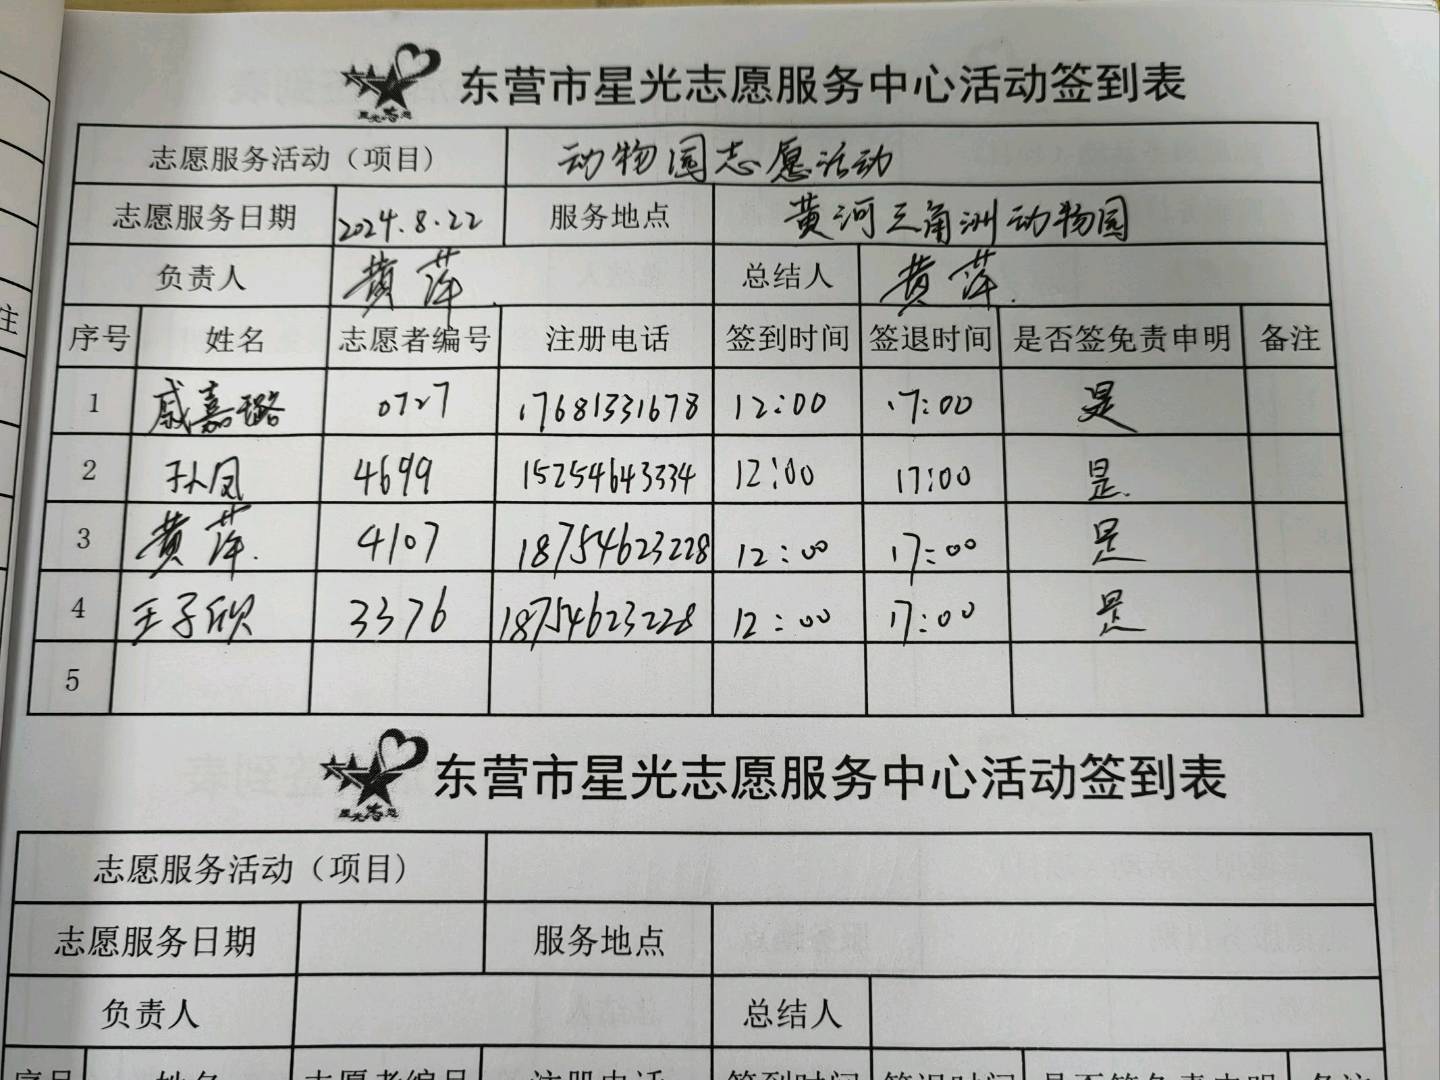 星光志愿
东营市星光志愿服务中心活动签到表
志愿服务活动（项目） 动物园志愿活动
志愿服务日期 2024.8.22 服务地点 黄河三角洲动物园
负责人 黄萍 总结人 黄萍
序号 姓名 志愿者编号 注册电话 签到时间 签退时间 是否签免责申明 备注
1 戚嘉璐 0727 17681331678 12:00 17:00 是
2 孙凤 4699 15254643334 12:00 17:00 是
3 黄萍 4107 18754623228 12:00 17:00 是
4 王子欣 3376 18754623228 12:00 17:00 是
5
东营市星光志愿服务中心活动签到表
志愿服务活动（项目）
志愿服务日期 服务地点
负责人 总结人
序号 姓名 志愿者编号 注册电话 签到时间 签退时间 是否签免责申明 备注
注